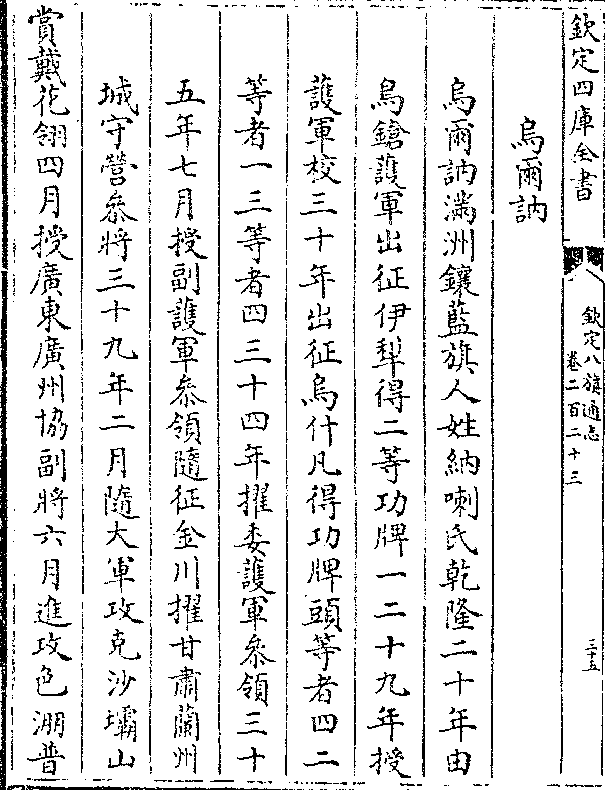 欽定四庫全書
欽定八旗通志
卷二百二十三
三十五
烏爾訥
烏爾訥滿洲鑲藍旗人姓納喇氏乾隆二十年由
鳥鎗護軍出征伊犁得二等功牌一二十九年授
護軍校三十年出征烏什凡得功牌頭等者四二
等者一三等者四三十四年擢委護軍叅領三十
五年七月授副護軍叅領隨征金川擢甘肅蘭州
城守營叅將三十九年二月隨大軍攻克沙壩山
賞戴花翎四月授廣東廣州協副將六月進攻色淜普